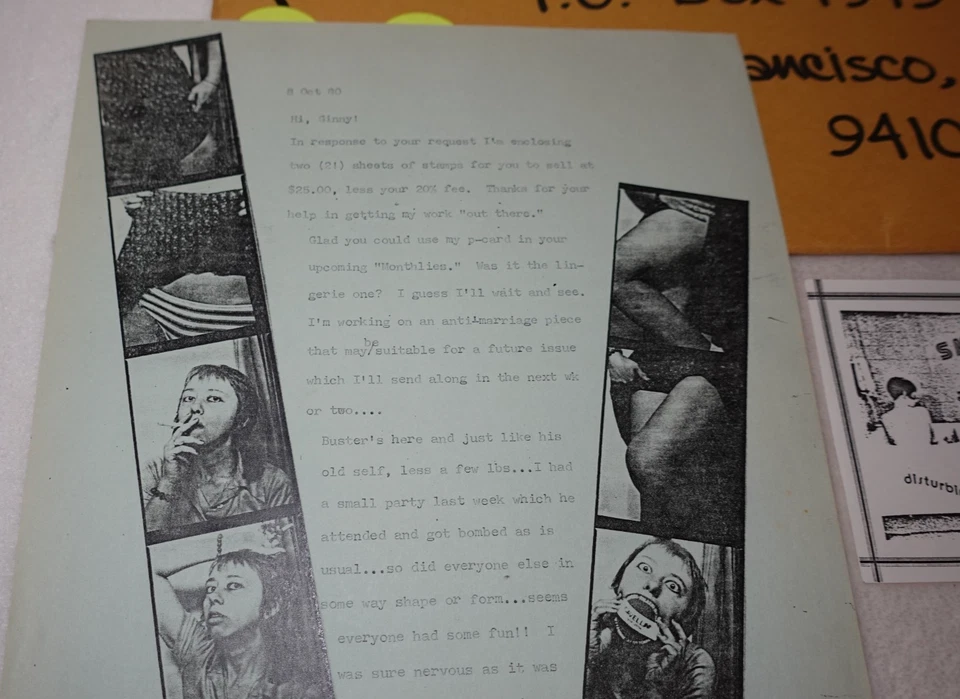 8 Oct 80
Hi, Ginny!
In response to your request I'm enclosing
two (2!) sheets of stamps for you to sell at
$25.00, less your 20% fee. Thanks for your
help in getting my work "out there."
Glad you could use my p-card in your
upcoming "Monthlies." Was it the lin-
gerie one? I guess I'll wait and see.
I'm working on an anti-marriage piece
be
that may/suitable for a future issue
which I'll send along in the next wk
or two....
Buster's here and just like his
old self, less a few lbs...I had
a small party last week which he
attended and got bombed as is
usual...so did everyone else in
some way shape or form...seems
everyone had some fun!! I
was sure nervous as it was
P.O. Box
ancisco,
9410
disturbi